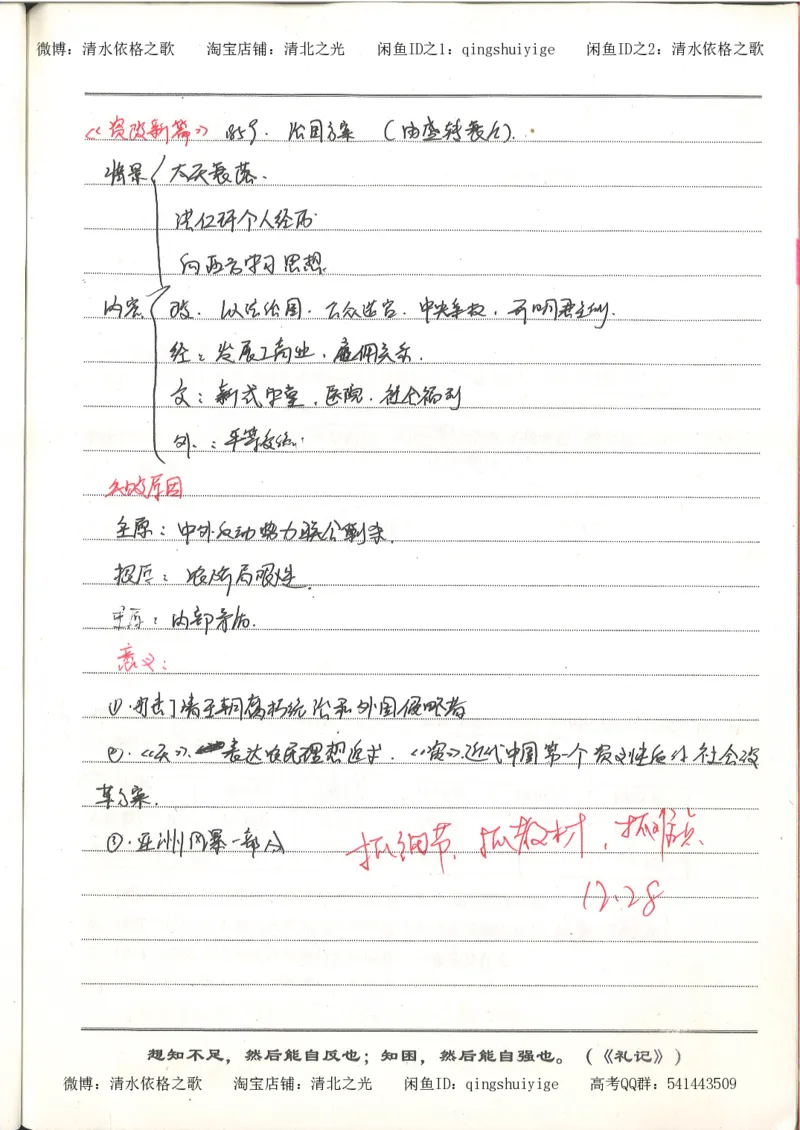 微博：清水依格之歌 淘宝店铺：清北之光 闲鱼ID之1：qingshuiyige 闲鱼ID之2：清水依格之歌
《资政新篇》 859. 治国方案 （由盛转衰后）.
背景 太天衰落.
洪仁玕个人经历
向西方学习思想.
内容 政. 以法治国. 公众选官. 中央集权，开明君主制.
经：发展工商业，雇佣关系.
文：新式学堂，医院. 社会福利
外：平等交往.
失败原因
主原：中外反动势力联合剿杀.
根原：农阶局限性.
重原：内部矛盾.
意义：
①.打击了清王朝腐朽统治和外国侵略者
②.《天》. 表达农民理想追求.《资》.近代中国第一个资义性质的社会改
革方案.
③.亚洲风暴一部分
抓细节，抓教材，抓
12.28
想知不足，然后能自反也；知困，然后能自强也。（《礼记》）
微博：清水依格之歌 淘宝店铺：清北之光 闲鱼ID：qingshuiyige 高考QQ群：541443509